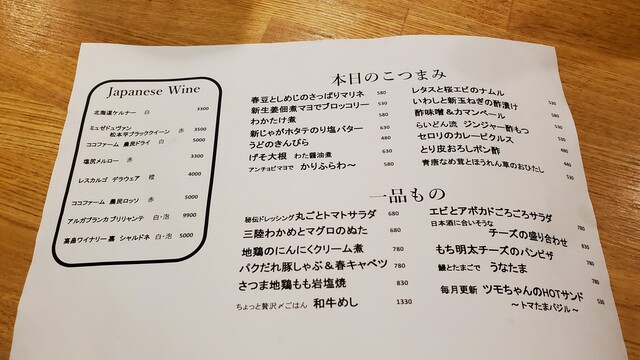 Japanese Wine
北海道ケルナー 白 3300
ミュゼドュヴァン
松本平ブラッククイーン 赤 3500
ココファーム 農民ドライ 白 5000
塩尻メルロー 赤 3300
レスカルゴ デラウェア 橙 4000
ココファーム 農民ロッソ 赤 5000
アルガブランカ ブリリャンテ 白・泡 9900
高畠ワイナリー 嘉 シャルドネ 白・泡 5000
本日のこつまみ
春豆としめじのさっぱりマリネ 580
新生姜佃煮マヨでブロッコリー 530
わかたけ煮 580
新じゃがホタテのり塩バター 630
うどのきんぴら 480
げそ大根 わた醤油煮 630
アンチョビマヨで かりふらわ〜 580
レタスと桜エビのナムル 530
いわしと新玉ねぎの酢漬け 530
酢味噌&カマンベール 580
らいどん流 ジンジャー酢もつ 530
セロリのカレーピクルス 530
とり皮おろしポン酢 480
青唐なめ茸とほうれん草のおひたし 530
一品もの
秘伝ドレッシング 丸ごとトマトサラダ 680
三陸わかめとマグロのぬた 680
地鶏のにんにくクリーム煮 780
バクだれ豚しゃぶ&春キャベツ 780
さつま地鶏もも岩塩焼 830
ちょっと贅沢〆ごはん 和牛めし 1330
エビとアボカドごろごろサラダ 780
日本酒に合いそうな
チーズの盛り合わせ 830
もち明太チーズのパンピザ 780
鰻とたまごで うなたま 780
毎月更新 ツモちゃんのHOTサンド 530
〜トマたまバジル〜